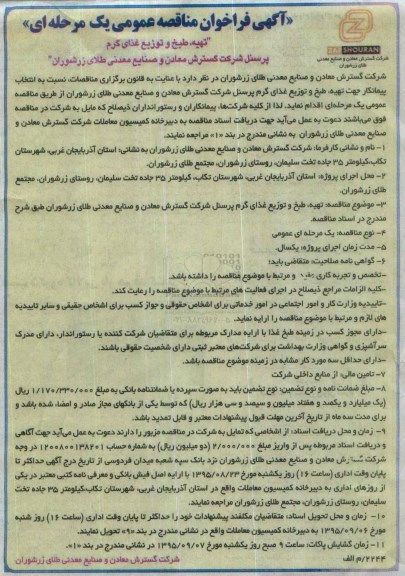 «آگهی فراخوان مناقصه عمومی یک مرحله ای»
"تهیه، طبخ و توزیع غذای گرم
پرسنل شرکت گسترش معادن و صنایع معدنی طلای زرشوران"
ZARSHOURAN
شرکت گسترش معادن و صنایع معدنی
طلای زرشوران
شرکت گسترش معادن و صنایع معدنی طلای زرشوران در نظر دارد با عنایت به قانون برگزاری مناقصات، نسبت به انتخاب
پیمانکار جهت تهیه، طبخ و توزیع غذای گرم پرسنل شرکت گسترش معادن و صنایع معدنی طلای زرشوران از طریق مناقصه
عمومی یک مرحله‌ای اقدام نماید. لذا از کلیه شرکت‌ها، پیمانکاران و رستورانداران ذیصلاح که مایل به شرکت در مناقصه
فوق می‌باشند دعوت به عمل می‌آید جهت دریافت اسناد مناقصه به دبیرخانه کمیسیون معاملات شرکت گسترش معادن و
صنایع معدنی طلای زرشوران به نشانی مندرج در بند «۱» مراجعه نمایند.
۱- نام و نشانی کارفرما: شرکت گسترش معادن و صنایع معدنی طلای زرشوران به نشانی: استان آذربایجان غربی، شهرستان
تکاب، کیلومتر ۳۵ جاده تخت سلیمان، روستای زرشوران، مجتمع طلای زرشوران.
۲- محل اجرای پروژه: استان آذربایجان غربی، شهرستان تکاب، کیلومتر ۳۵ جاده تخت سلیمان، روستای زرشوران، مجتمع
طلای زرشوران.
۳- موضوع مناقصه: تهیه، طبخ و توزیع غذای گرم پرسنل شرکت گسترش معادن و صنایع معدنی طلای زرشوران طبق شرح
مندرج در اسناد مناقصه.
۴- نوع مناقصه: یک مرحله ای عمومی
۵- مدت زمان اجرای پروژه: یکسال.
۶- گواهی نامه صلاحیت: متقاضی باید:
-تخصص و تجربه کاری مفید و مرتبط با موضوع مناقصه را داشته باشد.
-کلیه الزامات مراجع ذیصلاح در اجرای فعالیت های مرتبط با موضوع مناقصه را رعایت کند.
-تاییدیه وزارت کار و امور اجتماعی در امور خدماتی برای اشخاص حقوقی و جواز کسب برای اشخاص حقیقی و سایر تاییدیه
های لازم و مرتبط با موضوع مناقصه را ارایه نماید.
-دارای مجوز کسب در زمینه طبخ غذا با ارایه مدارک مربوطه برای متقاضیان شرکت کننده یا رستوراندار، دارای مدرک
سرآشپزی و گواهی وزارت بهداشت برای شرکت‌های معتبر ثبتی دارای شخصیت حقوقی باشند.
-دارای حداقل سه مورد کار مشابه در زمینه موضوع مناقصه باشد.
۷- تامین مالی: از منابع داخلی شرکت
۸- مبلغ ضمانت نامه و نوع تضمین: نوع تضمین باید به صورت سپرده یا ضمانتنامه بانکی به مبلغ ۱/۱۷۰/۳۳۰/۰۰۰ ریال
(یک میلیارد و یکصد و هفتاد میلیون و سیصد و سی هزار ریال) که توسط یکی از بانکهای مجاز صادر و امضا، شده باشد و
برای مدت سه ماه از تاریخ آخرین مهلت قبول پیشنهادات معتبر و قابل تمدید باشد.
۹- زمان و محل دریافت اسناد: از اشخاصی که تمایل به شرکت در مناقصه مزبور را دارند دعوت به عمل می‌آید جهت آگاهی
و دریافت اسناد مربوطه پس از واریز مبلغ ۲/۰۰۰/۰۰۰ (دو میلیون ریال) به شماره حساب ۱۲۰۰۸۰۰۱۳۸۲۰۱ در وجه
شرکت گسترش معادن و صنایع معدنی طلای زرشوران نزد بانک سپه شعبه میدان فردوسی از تاریخ درج آگهی حداکثر تا
پایان وقت اداری (ساعت ۱۶) روز یکشنبه مورخ ۱۳۹۵/۰۸/۲۳ با ارایه اصل فیش بانکی و معرفی نامه کتبی معتبر در یکی
از روزهای اداری به دبیرخانه کمیسیون معاملات واقع در استان آذربایجان غربی، شهرستان تکاب،کیلومتر ۳۵ جاده تخت
سلیمان، روستای زرشوران، مجتمع طلای زرشوران مراجعه نمایند.
۱۰- زمان و محل تحویل اسناد: متقاضیان مکلفند پیشنهادات خود را حداکثر تا پایان وقت اداری (ساعت ۱۶) روز شنبه
مورخ ۱۳۹۵/۰۹/۰۶ به دبیرخانه کمیسیون معاملات واقع در نشانی مندرج در بند «۹» تحویل نمایند.
۱۱- زمان گشایش پاکات: ساعت ۹ صبح روز یکشنبه مورخ ۱۳۹۵/۰۹/۰۷ در نشانی مندرج در بند «۱».
۲۲۴۴/م الف
شرکت گسترش معادن و صنایع معدنی طلای زرشوران